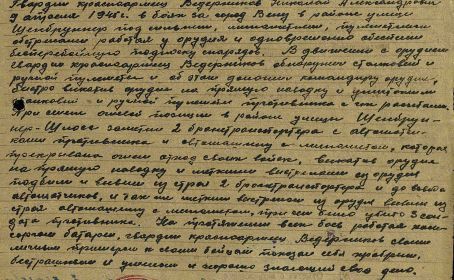 Гвардии красноармеец Ведерников Николай Александрович
9 апреля 1945 г. в боях за город Вену в районе улицы
Шенбруннер под сильным, минометным, пулеметным
обстрелом работал у орудия и одновременно обеспечил
бесперебойную подноску снарядов. В движении с орудием
гвардии красноармеец Ведерников обнаружил станковый и
ручной пулеметы и об этом доложил командиру орудия,
быстро выкатив орудие на прямую наводку и уничтожил
станковый и ручной пулеметы противника с их расчетами.
При смене огневой позиции в районе улицы Шенбрун-
нер-Шлосс заметил 2 бронетранспортера с автоматчи-
ками противника и автомашину с минометом, которая
прикрывала огнем отход своих войск, выкатив орудие
на прямую наводку и меткими выстрелами из орудия
подбили и вывели из строя 2 бронетранспортера и до взвода
автоматчиков, и так же метким выстрелом из орудия вывели из
строя автомашину с минометом, при чем было убито 3 сол-
дата противника. На протяжении всех боев работая
батареи, гвардии красноармеец Ведерников своим
личным примером к своим бойцам показал себя храбрым,
бесстрашным и умелым и хорошо знающий свое дело.